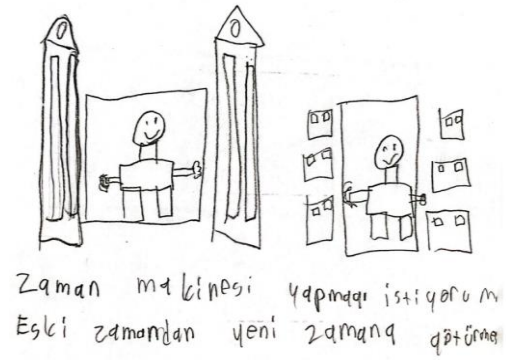 Zaman makinesi yapmaqı istiyorum
Eski zamandan yeni zamana götürme